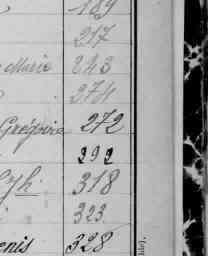 189
217
Marie 243
274
Grégoire 272
292
318
323
enis 328